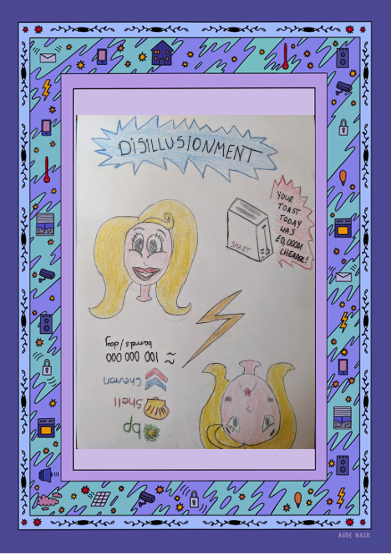 DISILLUSIONMENT
YOUR
TOAST
TODAY
WAS
CHEAPER!
SMART
bp
Shell
Chevron
≈ 100 000 000
AUDE NASR